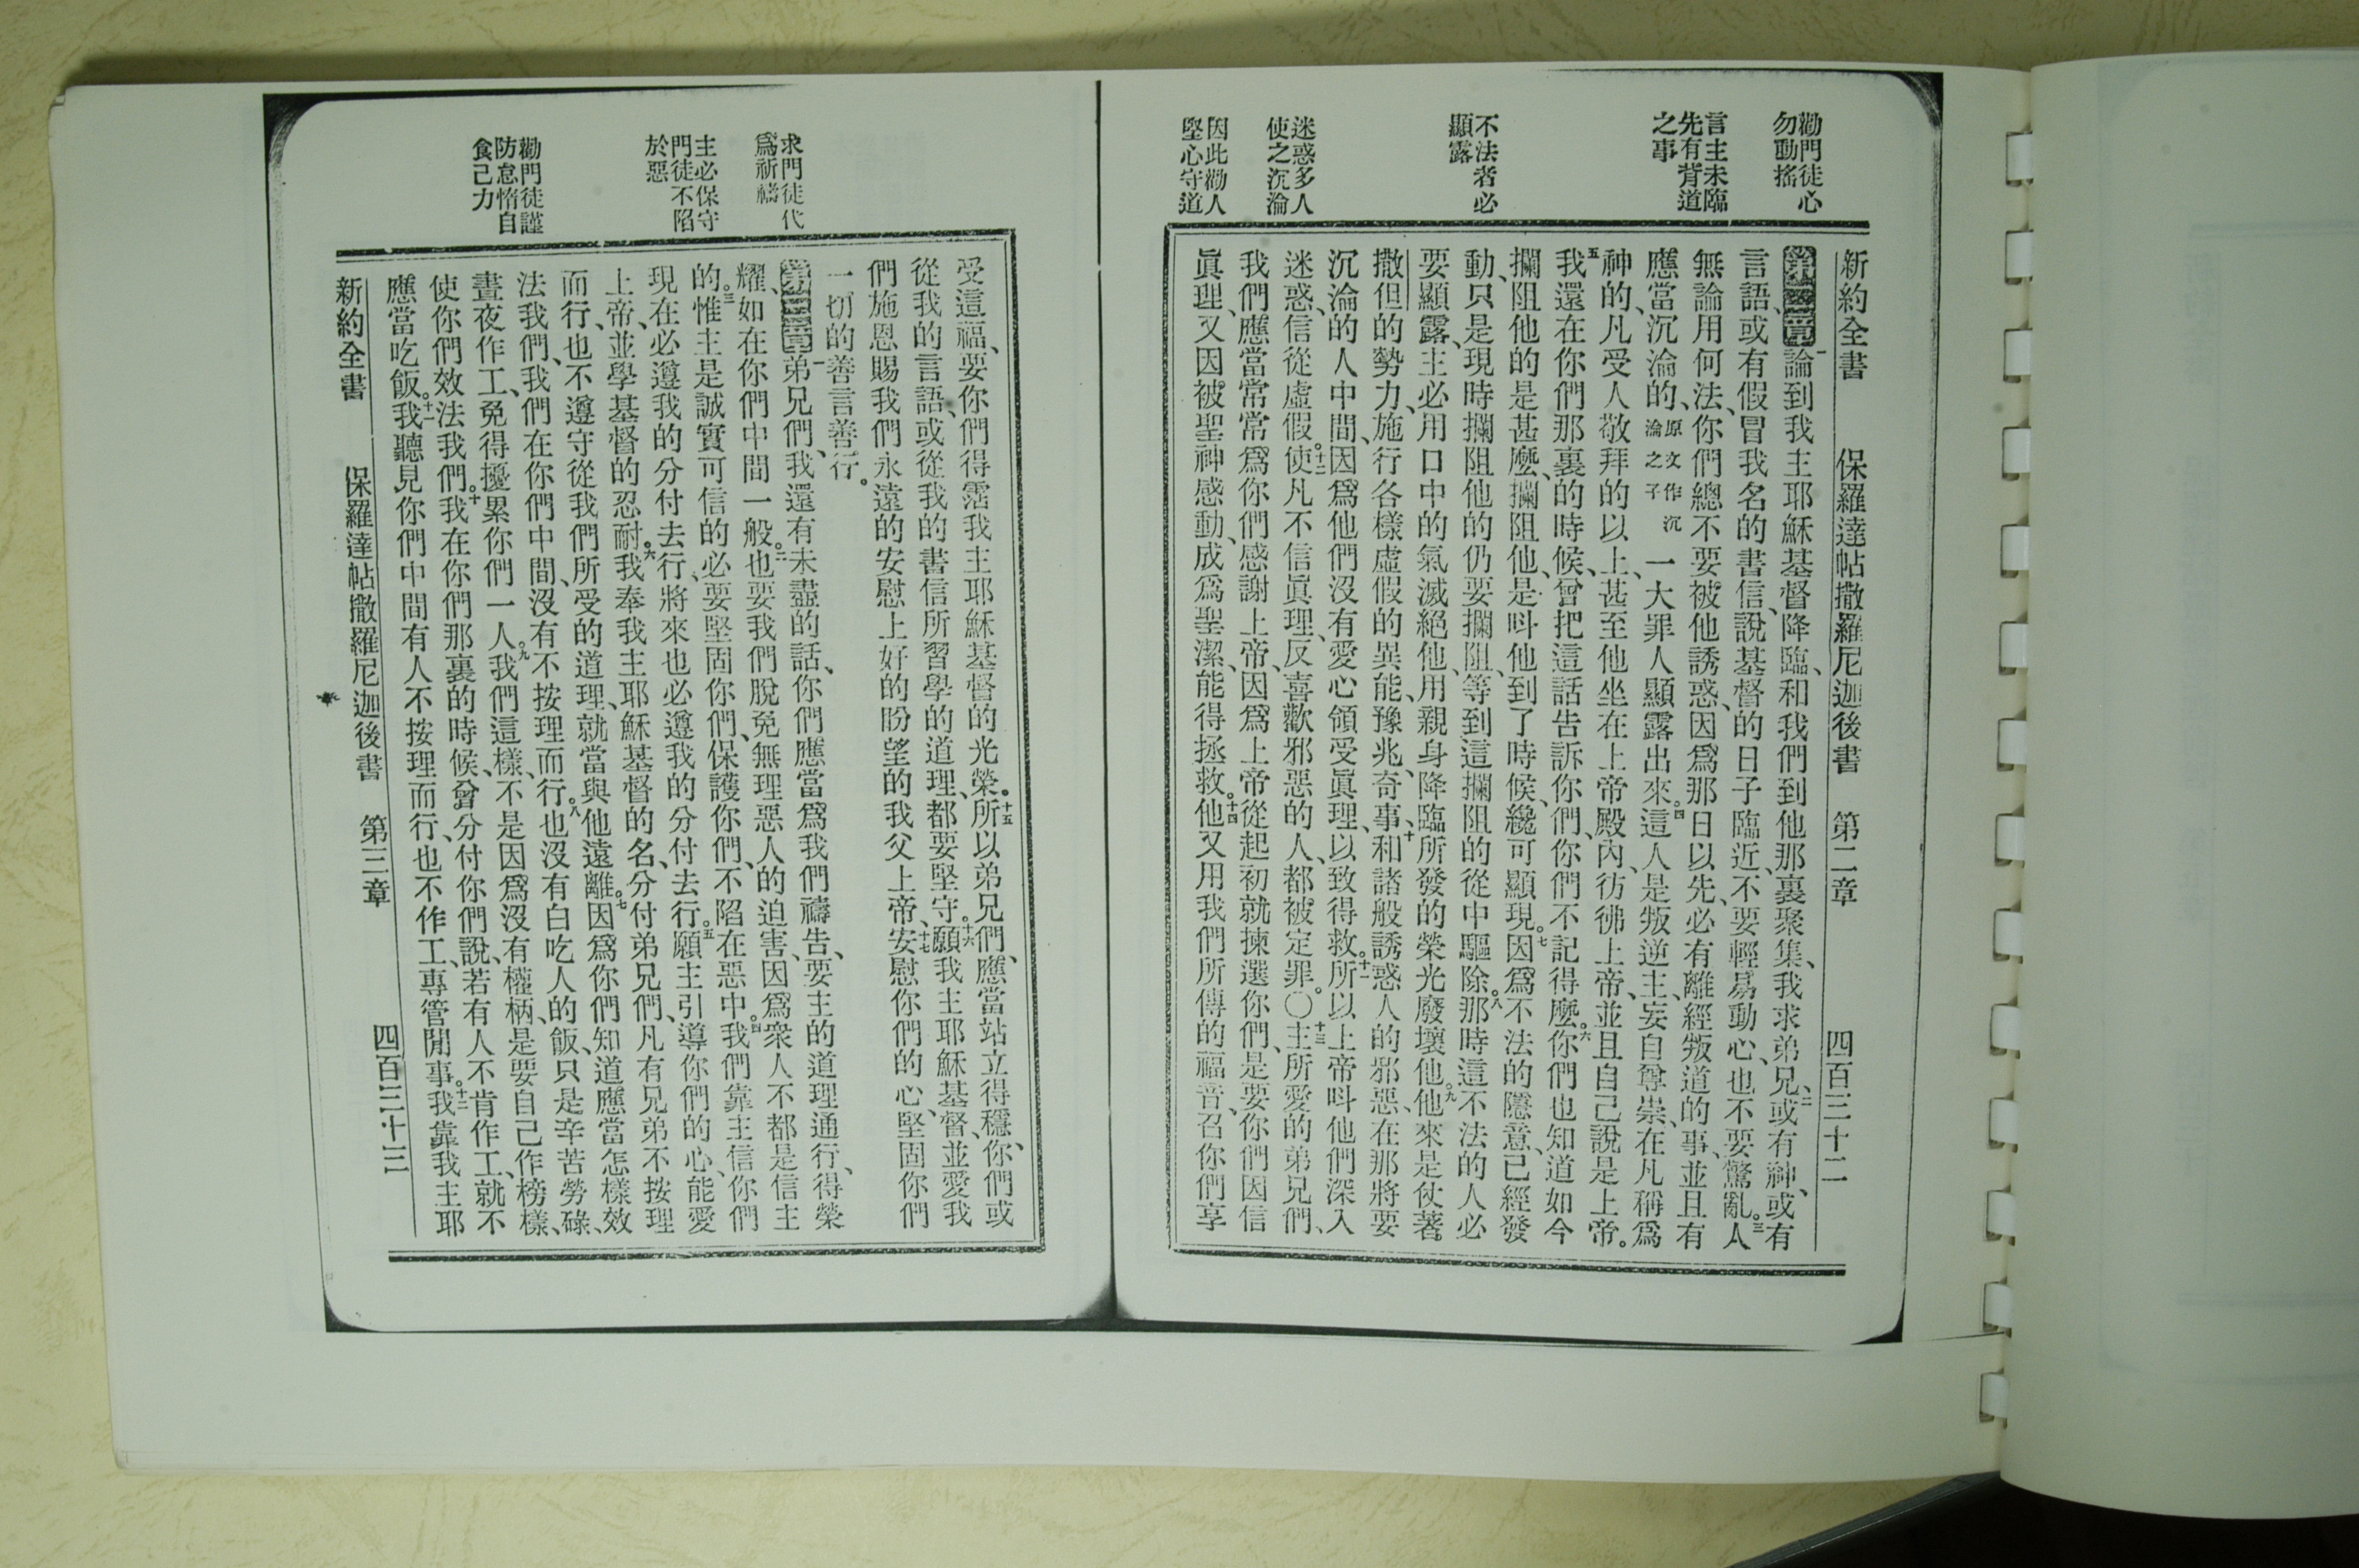 勸門徒心
勿動搖
言主未臨
先有背道
之事
不法者必
顯露
迷惑多人
使之沉淪
因此勸人
堅心守道
新約全書　保羅達帖撒羅尼迦後書　第二章　四百三十二
第二章一論到我主耶穌基督降臨、和我們到他那裏聚集、我求弟兄、二或有神、或有
言語、或有假冒我名的書信、說基督的日子臨近、不要輕易動心、也不要驚亂。三人
無論用何法、你們總不要被他誘惑、因爲那日以先、必有離經叛道的事、並且有
應當沉淪的、原文作沉淪之子一大罪人顯露出來。四這人是叛逆主、妄自尊崇、在凡稱爲
神的、凡受人敬拜的以上、甚至他坐在上帝殿內、彷彿上帝、並且自己說是上帝。
五我還在你們那裏的時候、曾把這話告訴你們、你們不記得麼。六你們也知道如今
攔阻他的是甚麼、攔阻他、是呌他到了時候、纔可顯現。七因爲不法的隱意、已經發
動、只是現時攔阻他的仍要攔阻、等到這攔阻的從中驅除。八那時這不法的人必
要顯露、主必用口中的氣滅絕他、用親身降臨所發的榮光廢壞他。九他來是仗著
撒但的勢力、施行各樣虛假的異能、豫兆、奇事、十和諸般誘惑人的邪惡、在那將要
沉淪的人中間、因爲他們沒有愛心領受眞理、以致得救。十一所以上帝呌他們深入
迷惑、信從虛假。十二使凡不信眞理、反喜歡邪惡的人、都被定罪。〇十三主所愛的弟兄們、
我們應當常常爲你們感謝上帝、因爲上帝從起初就揀選你們、是要你們因信
眞理、又因被聖神感動、成爲聖潔、能得拯救。十四他又用我們所傳的福音、召你們享
求門徒代
爲祈禱
主必保守
門徒不陷
於惡
勸門徒謹
防怠惰自
食己力
受這福、要你們得霑我主耶穌基督的光榮。十五所以弟兄們、應當站立得穩、你們或
從我的言語、或從我的書信所習學的道理、都要堅守。十六願我主耶穌基督、並愛我
們施恩賜我們永遠的安慰上好的盼望的我父上帝、十七安慰你們的心、堅固你們
一切的善言善行。
第三章一弟兄們、我還有未盡的話、你們應當爲我們禱告、要主的道理通行、得榮
耀、如在你們中間一般。二也要我們脫免無理惡人的迫害、因爲衆人不都是信主
的。三惟主是誠實可信的、必要堅固你們、保護你們、不陷在惡中。四我們靠主信你們
現在必遵我的分付去行、將來也必遵我的分付去行。五願主引導你們的心、能愛
上帝、並學基督的忍耐。六我奉我主耶穌基督的名、分付弟兄們、凡有兄弟不按理
而行、也不遵守從我們所受的道理、就當與他遠離。七因爲你們知道應當怎樣效
法我們、我們在你們中間、沒有不按理而行。八也沒有白吃人的飯、只是辛苦勞碌、
晝夜作工、免得擾累你們一人。九我們這樣、不是因爲沒有權柄、是要自己作榜樣、
使你們效法我們。十我在你們那裏的時候、曾分付你們說、若有人不肯作工、就不
應當吃飯。十一我聽見你們中間有人不按理而行、也不作工、專管閒事。十二我靠我主耶
新約全書　保羅達帖撒羅尼迦後書　第三章　四百三十三